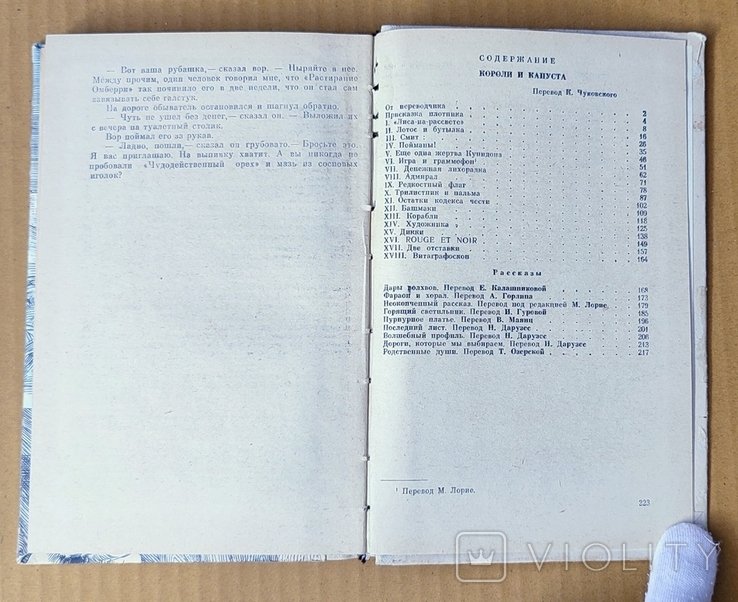 — Вот ваша рубашка,— сказал вор. — Ныряйте в нее.
Между прочим, один человек говорил мне, что «Растирание
Омберри» так починило его в две недели, что он стал сам
завязывать себе галстук.
На пороге обыватель остановился и шагнул обратно.
— Чуть не ушел без денег,— сказал он. — Выложил их
с вечера на туалетный столик.
Вор поймал его за рукав.
— Ладно, пошли,— сказал он грубовато.— Бросьте это.
Я вас приглашаю. На выпивку хватит. А вы никогда не
пробовали «Чудодейственный орех» и мазь из сосновых
иголок?
СОДЕРЖАНИЕ
КОРОЛИ И КАПУСТА
Перевод К. Чуковского
От переводчика
Присказка плотника 2
I. «Лиса-на-рассвете» 4
II. Лотос и бутылка 8
III. Смит 16
IV. Пойманы! 26
V. Еще одна жертва Купидона 35
VI. Игра и граммофон¹ 46
VII. Денежная лихорадка 51
VIII. Адмирал 62
IX. Редкостный флаг 71
X. Трилистник и пальма 78
XI. Остатки кодекса чести 87
XII. Башмаки 102
XIII. Корабли 109
XIV. Художники 115
XV. Дикки 125
XVI. ROUGE ET NOIR 138
XVII. Две отставки 149
XVIII. Витаграфоскоп 157
164
Рассказы
Дары волхвов. Перевод Е. Калашниковой 168
Фараон и хорал. Перевод А. Горлина 173
Неоконченный рассказ. Перевод под редакцией М. Лорие. 179
Горящий светильник. Перевод И. Гуровой 185
Пурпурное платье. Перевод В. Маянц 196
Последний лист. Перевод Н. Дарузес 201
Волшебный профиль. Перевод Н. Дарузес 208
Дороги, которые мы выбираем. Перевод Н. Дарузес 213
Родственные души. Перевод Т. Озерской 217
¹ Перевод М. Лорие.
223
VIOLITY